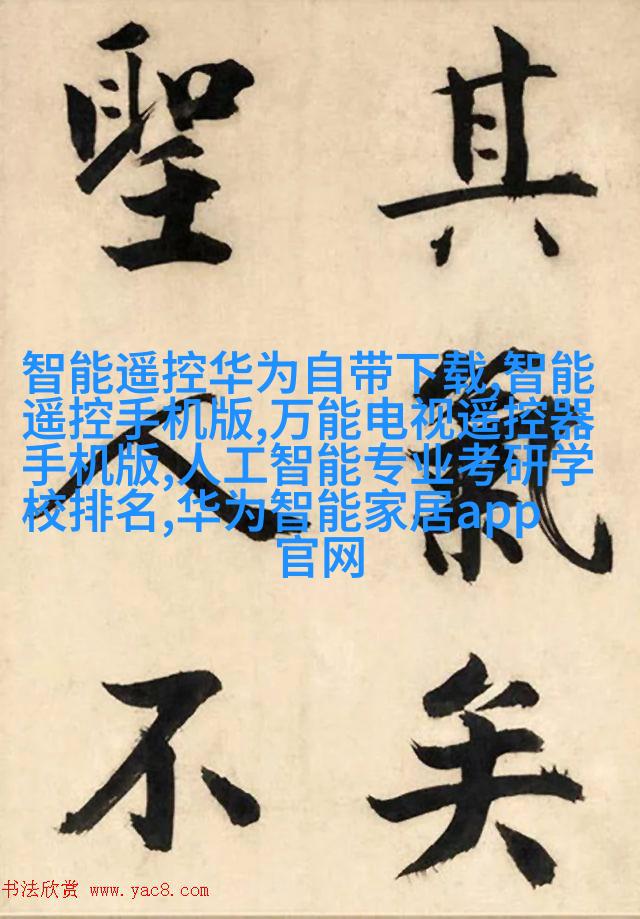 其氣矣
聖人不
智能遥控华为自带下载,智能
遥控手机版,万能电视遥控器
手机版,人工智能专业考研学
校排名,华为智能家居app
官网
书法欣赏 www.yac8.com